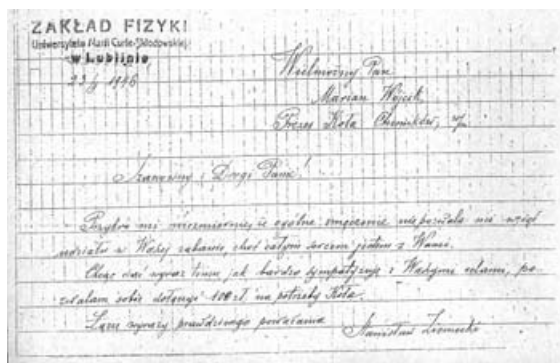 ZAKŁAD FIZYKI
Uniwersytetu Marii Curie-Skłodowskiej
w Lublinie
1946
Wielmożny Pan
Marian Wójcik
Prezes Koła Chemików,
Szanowny i Drogi Panie!
Przykro mi niezmiernie, że ogólne zmęczenie nie pozwala mi wziąć
udziału w Waszej zabawie, choć całym sercem jestem z Wami.
Chcąc dać wyraz temu, jak bardzo sympatyzuję z Waszymi celami, po-
zwalam sobie dołączyć 100 zł na potrzeby Koła.
Łączę wyrazy prawdziwego poważania
Stanisław Ziemecki